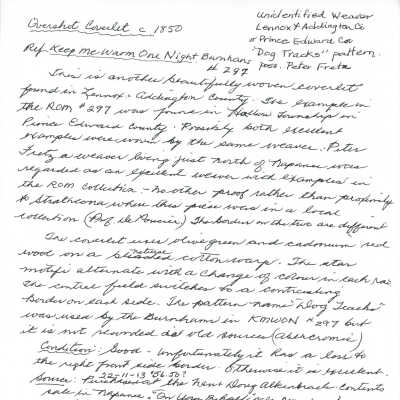 Overshot Coverlet c 1850
Unidentified Weaver
Lennox & Addington Co
or Prince Edward Co
"Dog Tracks" pattern.
poss. Peter Fretz
Ref. Keep Me Warm One Night Burnhams
# 297
This is another beautifully woven coverlet
found in Lennox & Addington County. The example in
the ROM #297 was found in Hallowell Township in
Prince Edward County. Possibly both excellent
examples were woven by the same weaver. Peter
Fretz a weaver living just north of Napanee was
regarded as an excellent weaver with examples in
the ROM collection - no other proof rather than proximity
to Strathcona where this piece was in a local
collection The borders on the two are different
The coverlet uses olive green and cadmium red
wool on a natural cotton warp. The star
motifs alternate with a change of colour in each row
the central field switches to a contrasting
border on each side. The pattern name "Dog Tracks"
was used by the Burnhams in KMWON #297 but
it is not recorded in old sources (Abercrombie)
Condition: Good - Unfortunately it has a loss to
the right front side border. Otherwise it is excellent.
22-11-13 $56.50?
Source: Purchased at the Kent Doug Alkenbrack contents
sale in Napanee.